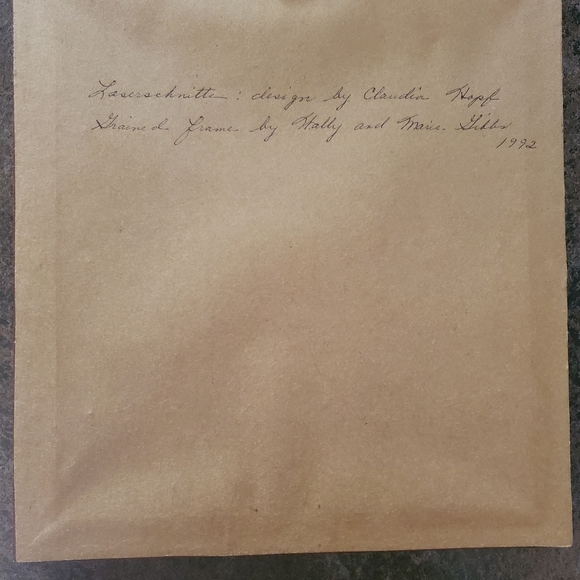 Laserschnitte: design by Claudia Hopf
Grained frame by Wally and Marie Gibbs
1992